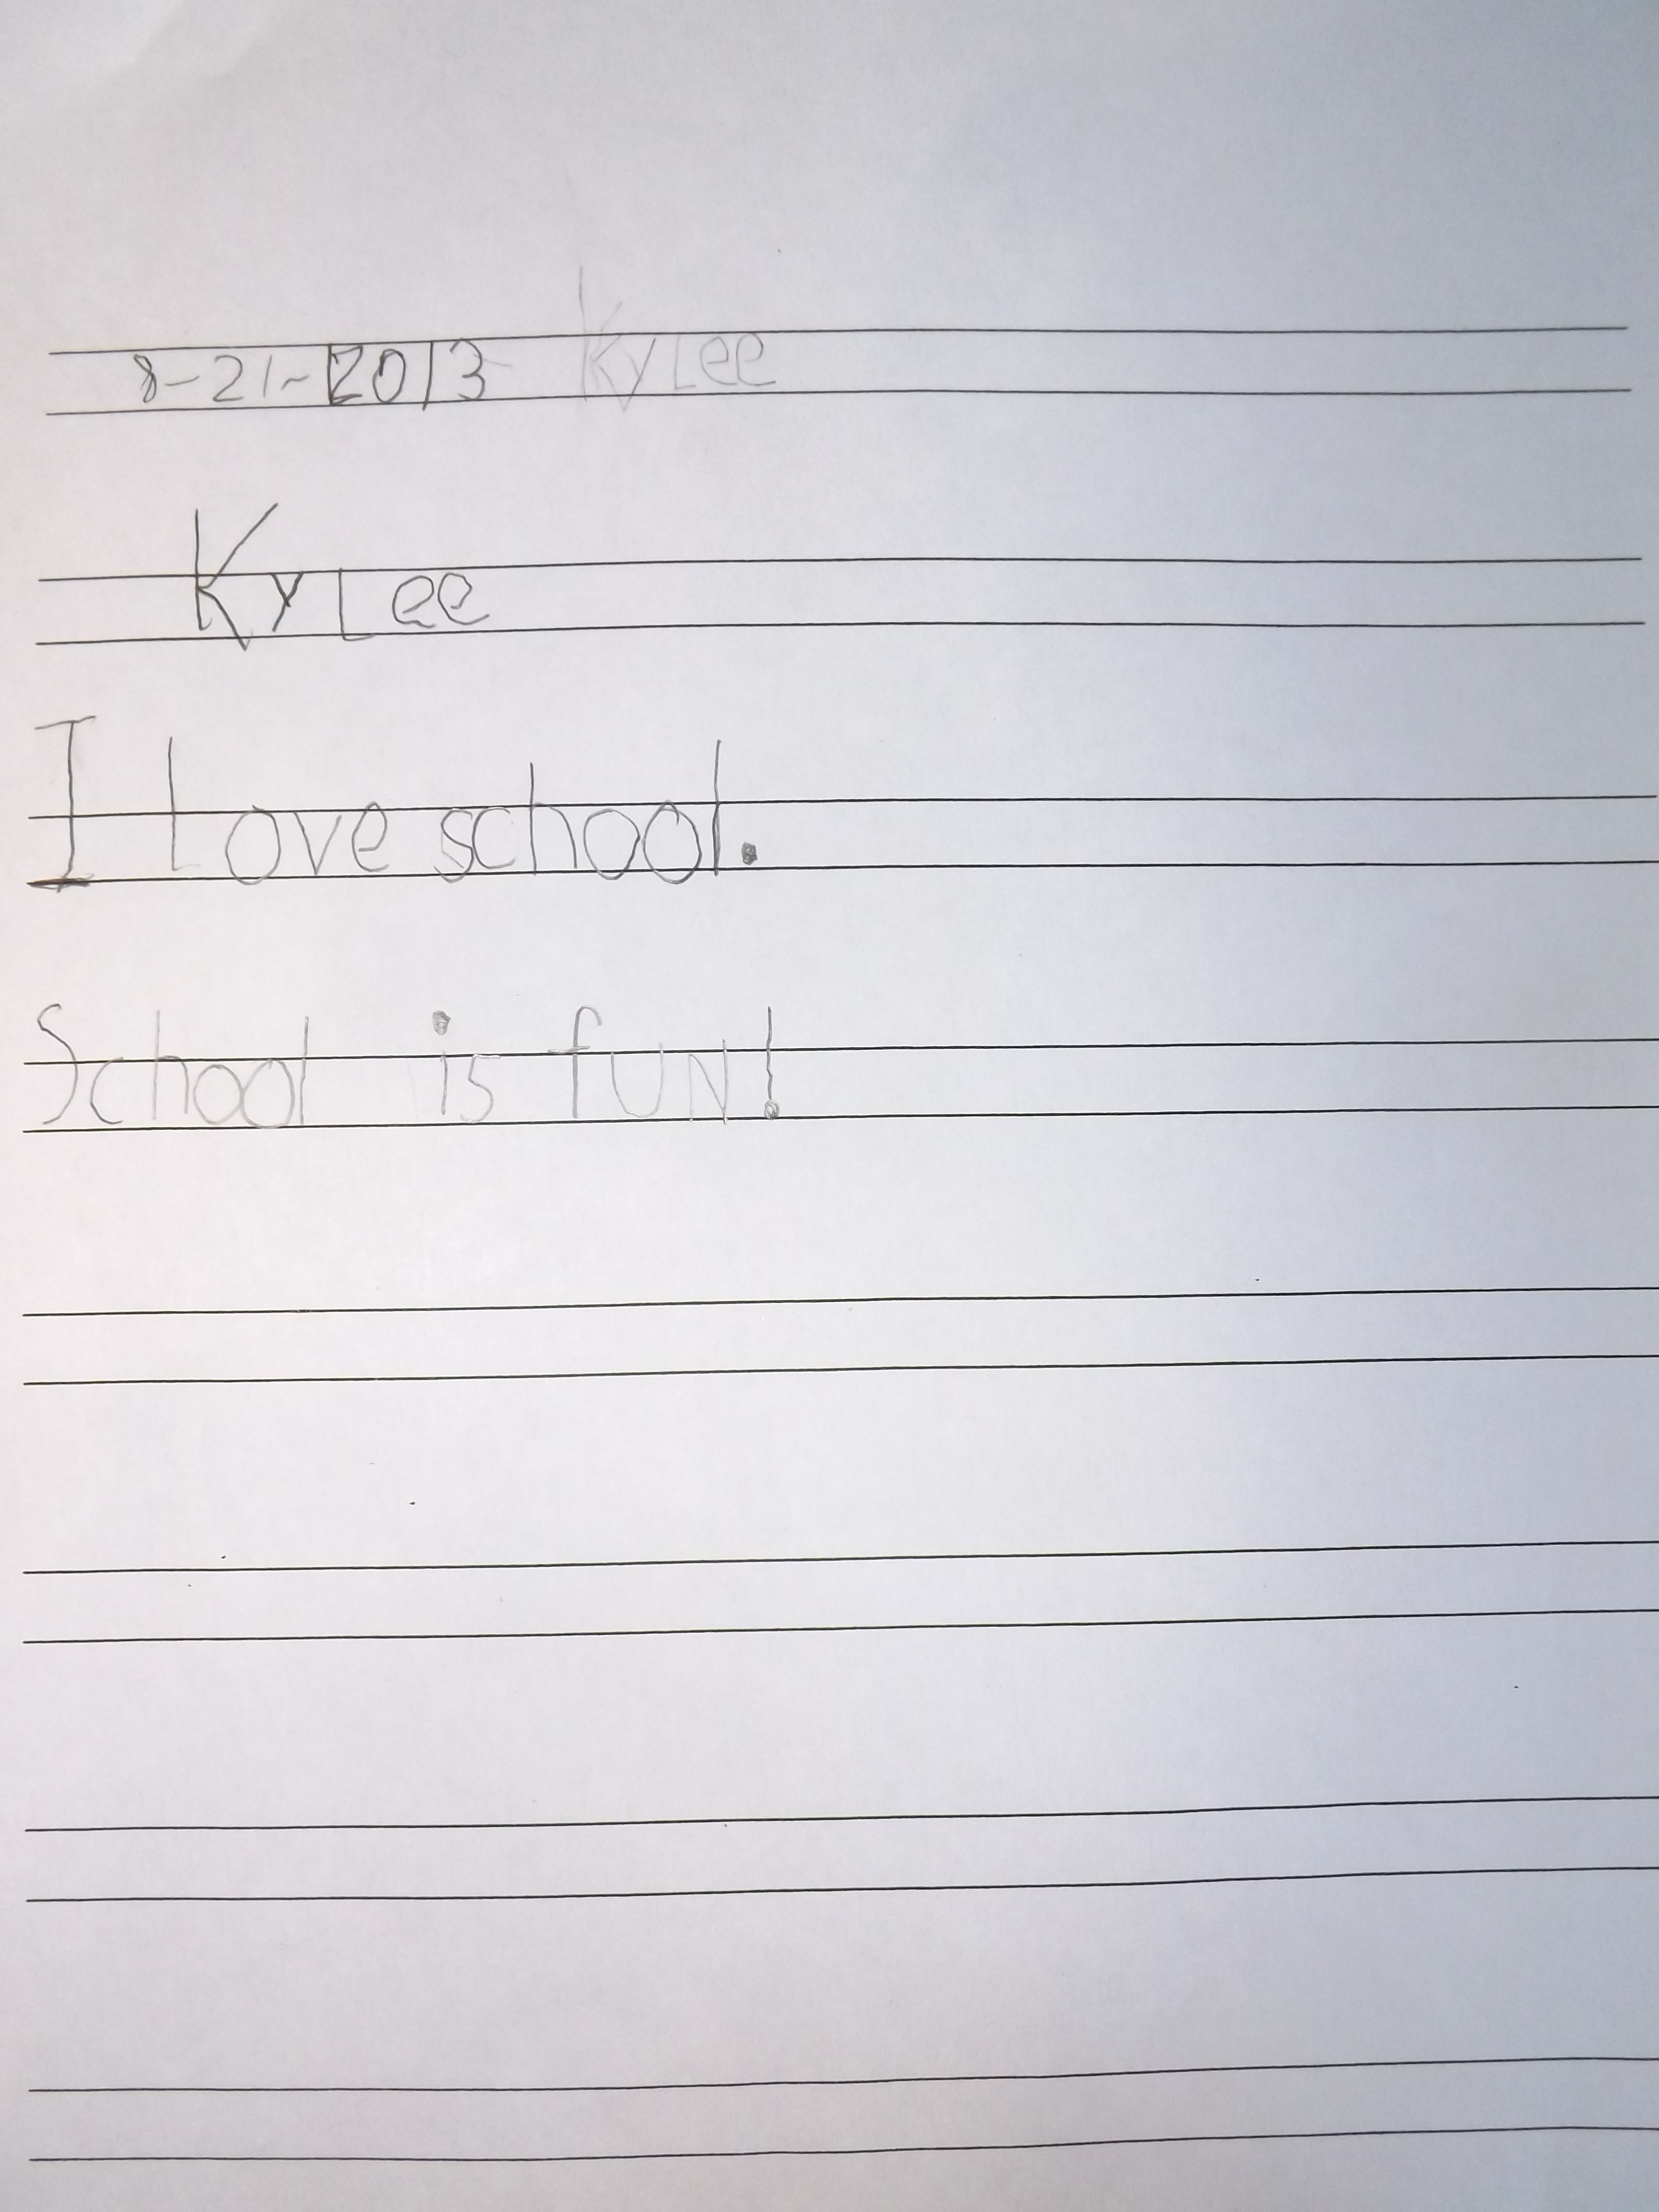 8-21-2013 KyLee
KyLee
I Love school.
School is fUN!